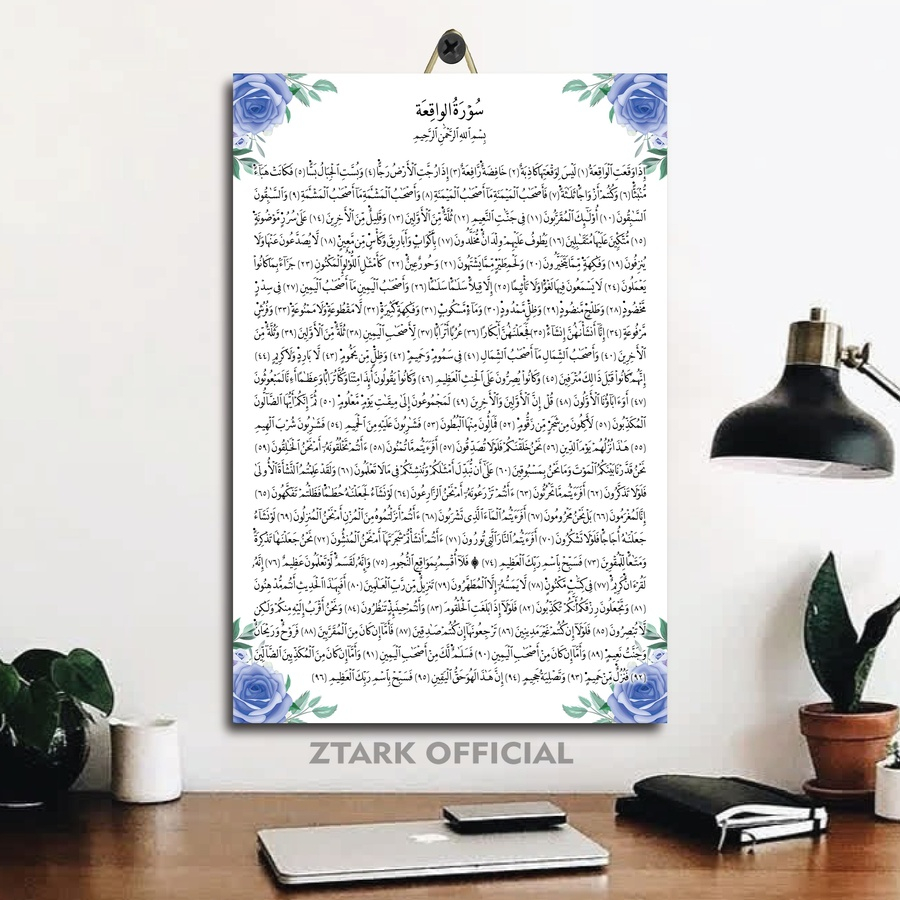 سُوْرَةُ الواقِعَة
بِسْمِ اللهِ الرَّحْمٰنِ الرَّحِيْمِ
إِذَا وَقَعَتِ ٱلْوَاقِعَةُ (١) لَيْسَ لِوَقْعَتِهَا كَاذِبَةٌ (٢) خَافِضَةٌ رَّافِعَةٌ (٣) إِذَا رُجَّتِ ٱلْأَرْضُ رَجًّا (٤) وَبُسَّتِ ٱلْجِبَالُ بَسًّا (٥) فَكَانَتْ هَبَآءً
مُّنۢبَثًّا (٦) وَكُنتُمْ أَزْوَٰجًا ثَلَٰثَةً (٧) فَأَصْحَٰبُ ٱلْمَيْمَنَةِ مَآ أَصْحَٰبُ ٱلْمَيْمَنَةِ (٨) وَأَصْحَٰبُ ٱلْمَشْـَٔمَةِ مَآ أَصْحَٰبُ ٱلْمَشْـَٔمَةِ (٩) وَٱلسَّٰبِقُونَ
ٱلسَّٰبِقُونَ (١٠) أُو۟لَٰٓئِكَ ٱلْمُقَرَّبُونَ (١١) فِى جَنَّٰتِ ٱلنَّعِيمِ (١٢) ثُلَّةٌ مِّنَ ٱلْأَوَّلِينَ (١٣) وَقَلِيلٌ مِّنَ ٱلْأَخِرِينَ (١٤) عَلَىٰ سُرُرٍ مَّوْضُونَةٍ
(١٥) مُّتَّكِـِٔينَ عَلَيْهَا مُتَقَٰبِلِينَ (١٦) يَطُوفُ عَلَيْهِمْ وِلْدَٰنٌ مُّخَلَّدُونَ (١٧) بِأَكْوَابٍ وَأَبَارِيقَ وَكَأْسٍ مِّن مَّعِينٍ (١٨) لَّا يُصَدَّعُونَ عَنْهَا وَلَا
يُنزِفُونَ (١٩) وَفَٰكِهَةٍ مِّمَّا يَتَخَيَّرُونَ (٢٠) وَلَحْمِ طَيْرٍ مِّمَّا يَشْتَهُونَ (٢١) وَحُورٌ عِينٌ (٢٢) كَأَمْثَٰلِ ٱللُّؤْلُؤِ ٱلْمَكْنُونِ (٢٣) جَزَآءًۢ بِمَا كَانُوا۟
يَعْمَلُونَ (٢٤) لَا يَسْمَعُونَ فِيهَا لَغْوًا وَلَا تَأْثِيمًا (٢٥) إِلَّا قِيلًا سَلَٰمًا سَلَٰمًا (٢٦) وَأَصْحَٰبُ ٱلْيَمِينِ مَآ أَصْحَٰبُ ٱلْيَمِينِ (٢٧) فِى سِدْرٍ
مَّخْضُودٍ (٢٨) وَطَلْحٍ مَّنضُودٍ (٢٩) وَظِلٍّ مَّمْدُودٍ (٣٠) وَمَآءٍ مَّسْكُوبٍ (٣١) وَفَٰكِهَةٍ كَثِيرَةٍ (٣٢) لَّا مَقْطُوعَةٍ وَلَا مَمْنُوعَةٍ (٣٣) وَفُرُشٍ
مَّرْفُوعَةٍ (٣٤) إِنَّآ أَنشَأْنَٰهُنَّ إِنشَآءً (٣٥) فَجَعَلْنَٰهُنَّ أَبْكَارًا (٣٦) عُرُبًا أَتْرَابًا (٣٧) لِّأَصْحَٰبِ ٱلْيَمِينِ (٣٨) ثُلَّةٌ مِّنَ ٱلْأَوَّلِينَ (٣٩) وَثُلَّةٌ مِّنَ
ٱلْأَخِرِينَ (٤٠) وَأَصْحَٰبُ ٱلشِّمَالِ مَآ أَصْحَٰبُ ٱلشِّمَالِ (٤١) فِى سَمُومٍ وَحَمِيمٍ (٤٢) وَظِلٍّ مِّن يَحْمُومٍ (٤٣) لَّا بَارِدٍ وَلَا كَرِيمٍ (٤٤)
إِنَّهُمْ كَانُوا۟ قَبْلَ ذَٰلِكَ مُتْرَفِينَ (٤٥) وَكَانُوا۟ يُصِرُّونَ عَلَى ٱلْحِنثِ ٱلْعَظِيمِ (٤٦) وَكَانُوا۟ يَقُولُونَ أَئِذَا مِتْنَا وَكُنَّا تُرَابًا وَعِظَٰمًا أَءِنَّا لَمَبْعُوثُونَ
(٤٧) أَوَءَابَآؤُنَا ٱلْأَوَّلُونَ (٤٨) قُلْ إِنَّ ٱلْأَوَّلِينَ وَٱلْأَخِرِينَ (٤٩) لَمَجْمُوعُونَ إِلَىٰ مِيقَٰتِ يَوْمٍ مَّعْلُومٍ (٥٠) ثُمَّ إِنَّكُمْ أَيُّهَا ٱلضَّآلُّونَ
ٱلْمُكَذِّبُونَ (٥١) لَأَكِلُونَ مِن شَجَرٍ مِّن زَقُّومٍ (٥٢) فَمَالِـُٔونَ مِنْهَا ٱلْبُطُونَ (٥٣) فَشَٰرِبُونَ عَلَيْهِ مِنَ ٱلْحَمِيمِ (٥٤) فَشَٰرِبُونَ شُرْبَ ٱلْهِيمِ
(٥٥) هَٰذَا نُزُلُهُمْ يَوْمَ ٱلدِّينِ (٥٦) نَحْنُ خَلَقْنَٰكُمْ فَلَوْلَا تُصَدِّقُونَ (٥٧) أَفَرَءَيْتُم مَّا تُمْنُونَ (٥٨) ءَأَنتُمْ تَخْلُقُونَهُۥٓ أَمْ نَحْنُ ٱلْخَٰلِقُونَ (٥٩)
نَحْنُ قَدَّرْنَا بَيْنَكُمُ ٱلْمَوْتَ وَمَا نَحْنُ بِمَسْبُوقِينَ (٦٠) عَلَىٰٓ أَن نُّبَدِّلَ أَمْثَٰلَكُمْ وَنُنشِئَكُمْ فِى مَا لَا تَعْلَمُونَ (٦١) وَلَقَدْ عَلِمْتُمُ ٱلنَّشْأَةَ ٱلْأُولَىٰ
فَلَوْلَا تَذَكَّرُونَ (٦٢) أَفَرَءَيْتُم مَّا تَحْرُثُونَ (٦٣) ءَأَنتُمْ تَزْرَعُونَهُۥٓ أَمْ نَحْنُ ٱلزَّٰرِعُونَ (٦٤) لَوْ نَشَآءُ لَجَعَلْنَٰهُ حُطَٰمًا فَظَلْتُمْ تَفَكَّهُونَ (٦٥)
إِنَّا لَمُغْرَمُونَ (٦٦) بَلْ نَحْنُ مَحْرُومُونَ (٦٧) أَفَرَءَيْتُمُ ٱلْمَآءَ ٱلَّذِى تَشْرَبُونَ (٦٨) ءَأَنتُمْ أَنزَلْتُمُوهُ مِنَ ٱلْمُزْنِ أَمْ نَحْنُ ٱلْمُنزِلُونَ (٦٩) لَوْ نَشَآءُ
جَعَلْنَٰهُ أُجَاجًا فَلَوْلَا تَشْكُرُونَ (٧٠) أَفَرَءَيْتُمُ ٱلنَّارَ ٱلَّتِى تُورُونَ (٧١) ءَأَنتُمْ أَنشَأْتُمْ شَجَرَتَهَآ أَمْ نَحْنُ ٱلْمُنشِـُٔونَ (٧٢) نَحْنُ جَعَلْنَٰهَا تَذْكِرَةً
وَمَتَٰعًا لِّلْمُقْوِينَ (٧٣) فَسَبِّحْ بِٱسْمِ رَبِّكَ ٱلْعَظِيمِ (٧٤) فَلَآ أُقْسِمُ بِمَوَٰقِعِ ٱلنُّجُومِ (٧٥) وَإِنَّهُۥ لَقَسَمٌ لَّوْ تَعْلَمُونَ عَظِيمٌ (٧٦) إِنَّهُۥ
لَقُرْءَانٌ كَرِيمٌ (٧٧) فِى كِتَٰبٍ مَّكْنُونٍ (٧٨) لَّا يَمَسُّهُۥٓ إِلَّا ٱلْمُطَهَّرُونَ (٧٩) تَنزِيلٌ مِّن رَّبِّ ٱلْعَٰلَمِينَ (٨٠) أَفَبِهَٰذَا ٱلْحَدِيثِ أَنتُم مُّدْهِنُونَ
(٨١) وَتَجْعَلُونَ رِزْقَكُمْ أَنَّكُمْ تُكَذِّبُونَ (٨٢) فَلَوْلَآ إِذَا بَلَغَتِ ٱلْحُلْقُومَ (٨٣) وَأَنتُمْ حِينَئِذٍ تَنظُرُونَ (٨٤) وَنَحْنُ أَقْرَبُ إِلَيْهِ مِنكُمْ وَلَٰكِن
لَّا تُبْصِرُونَ (٨٥) فَلَوْلَآ إِن كُنتُمْ غَيْرَ مَدِينِينَ (٨٦) تَرْجِعُونَهَآ إِن كُنتُمْ صَٰدِقِينَ (٨٧) فَأَمَّآ إِن كَانَ مِنَ ٱلْمُقَرَّبِينَ (٨٨) فَرَوْحٌ وَرَيْحَانٌ
وَجَنَّتُ نَعِيمٍ (٨٩) وَأَمَّآ إِن كَانَ مِنْ أَصْحَٰبِ ٱلْيَمِينِ (٩٠) فَسَلَٰمٌ لَّكَ مِنْ أَصْحَٰبِ ٱلْيَمِينِ (٩١) وَأَمَّآ إِن كَانَ مِنَ ٱلْمُكَذِّبِينَ ٱلضَّآلِّينَ
(٩٢) فَنُزُلٌ مِّنْ حَمِيمٍ (٩٣) وَتَصْلِيَةُ جَحِيمٍ (٩٤) إِنَّ هَٰذَا لَهُوَ حَقُّ ٱلْيَقِينِ (٩٥) فَسَبِّحْ بِٱسْمِ رَبِّكَ ٱلْعَظِيمِ (٩٦)
ZTARK OFFICIAL